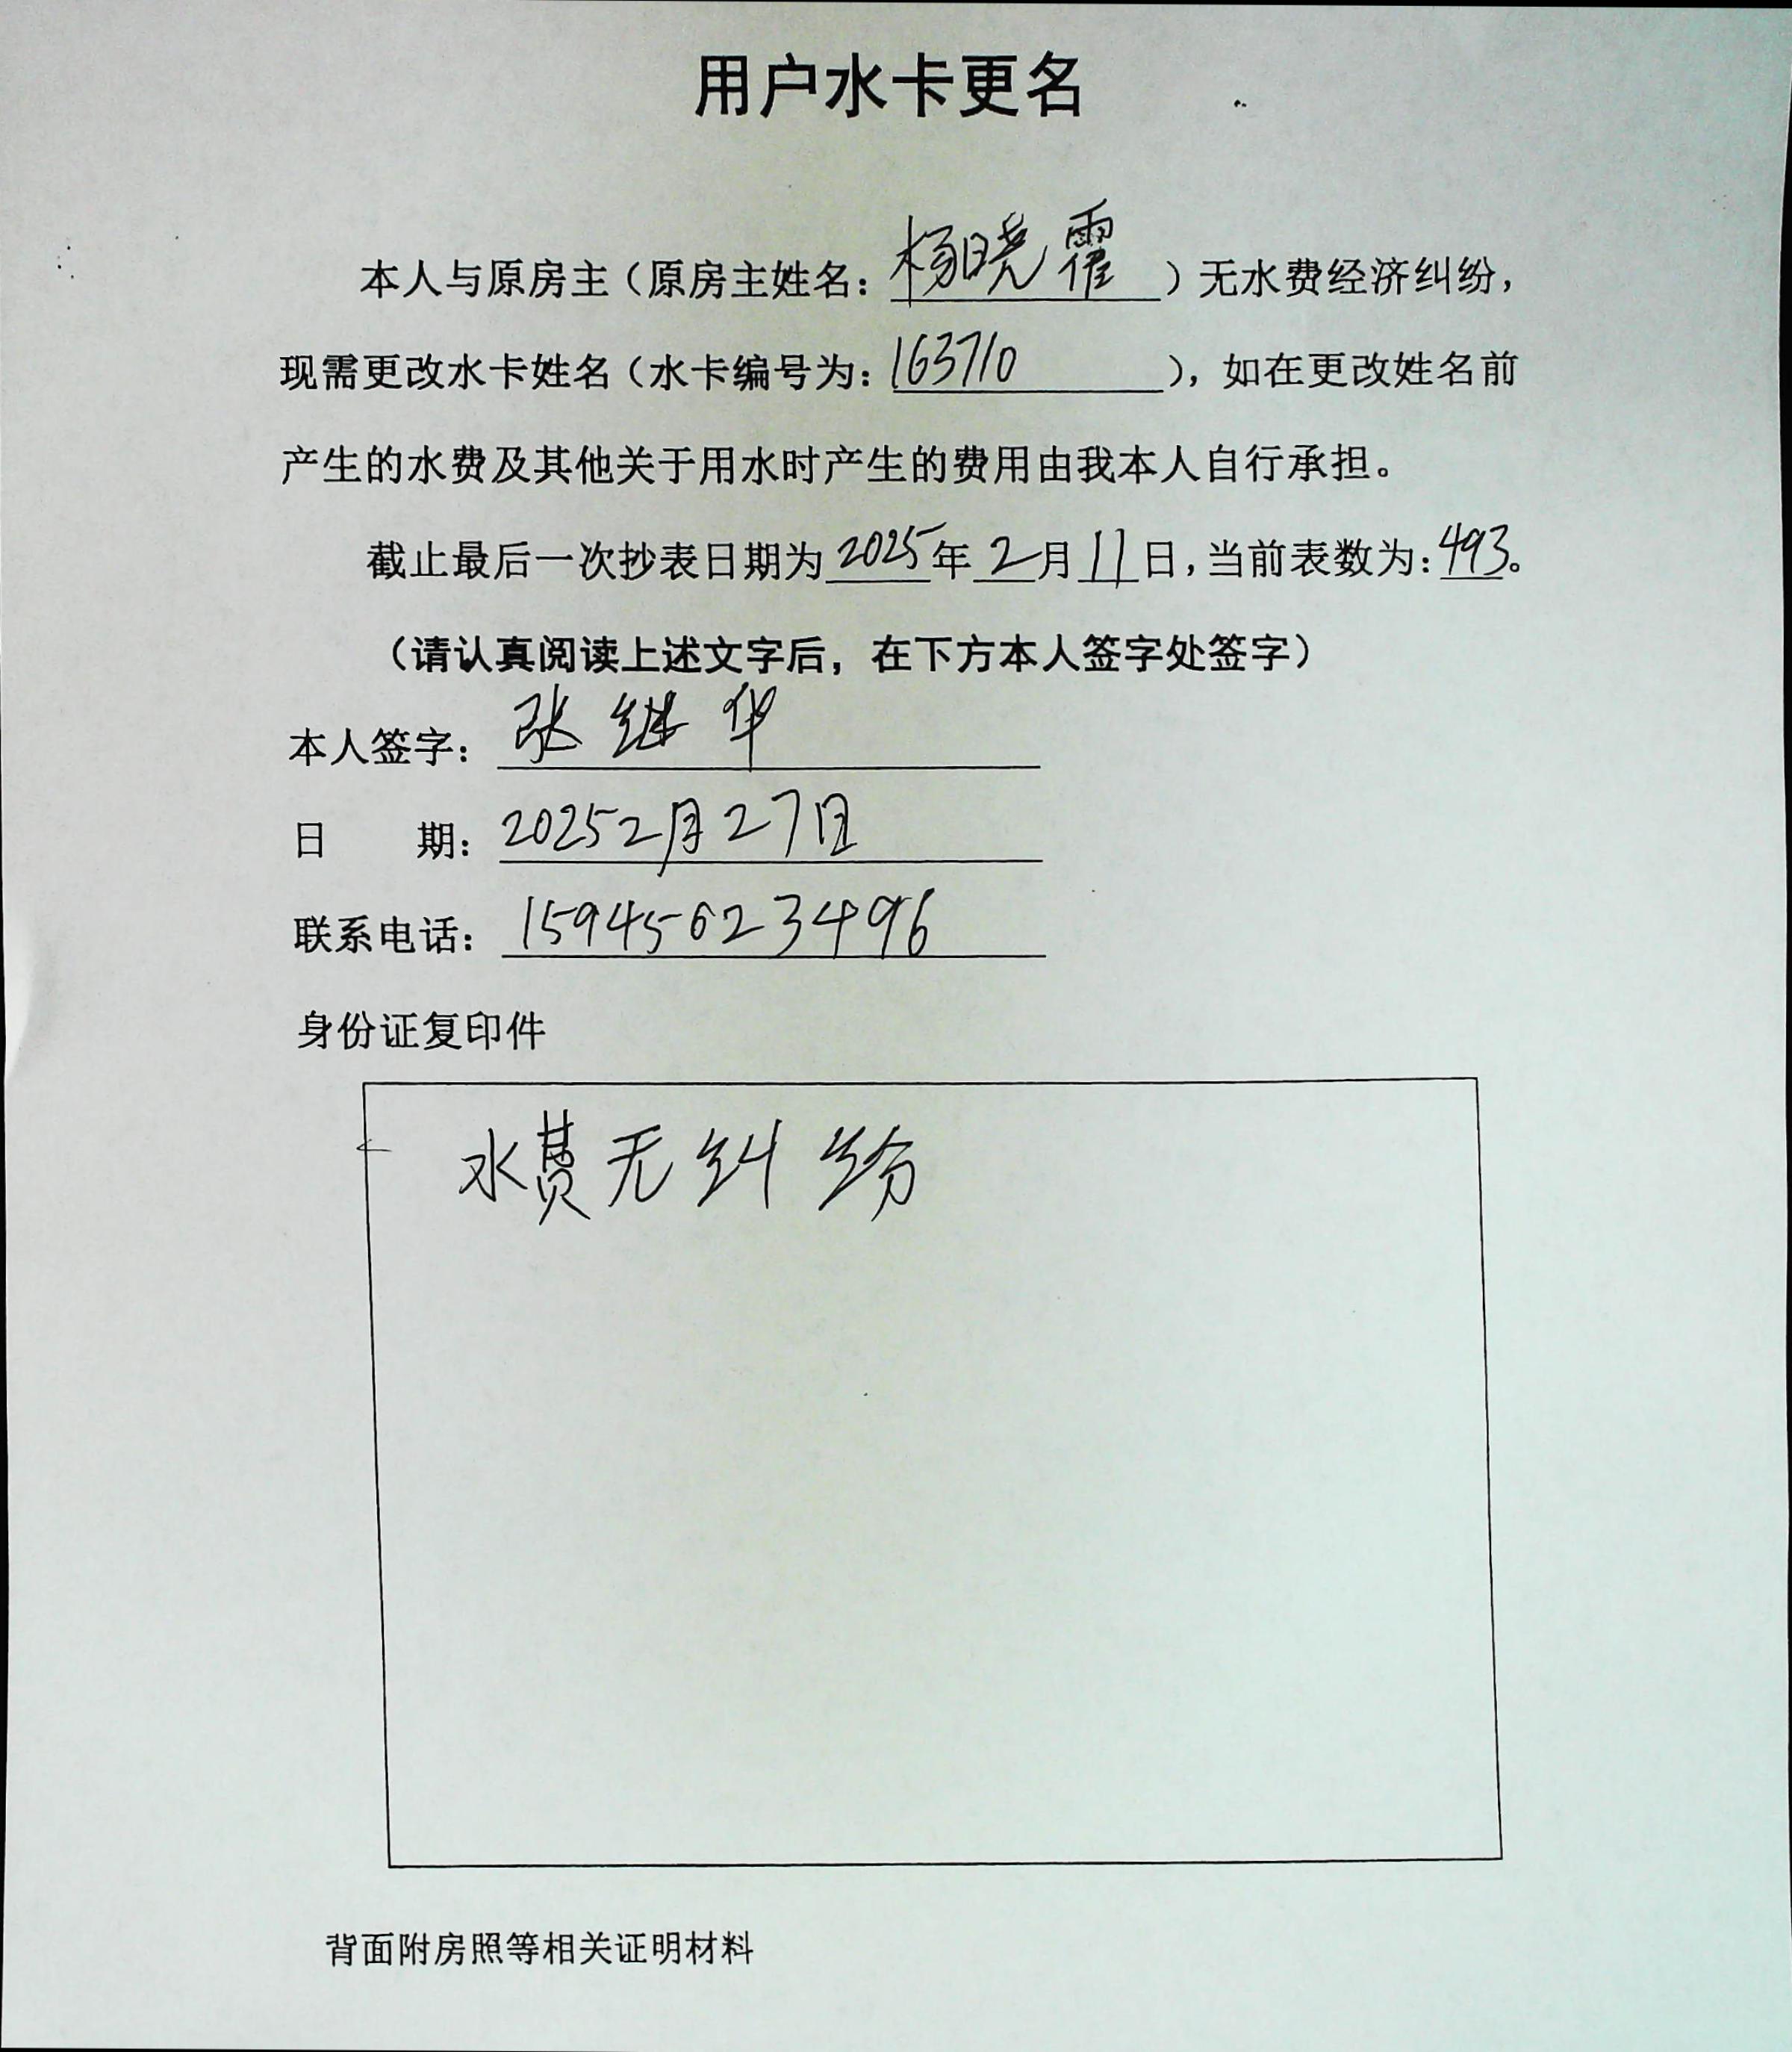 用户水卡更名
本人与原房主（原房主姓名：杨晓霍）无水费经济纠纷，
现需更改水卡姓名（水卡编号为：163710），如在更改姓名前
产生的水费及其他关于用水时产生的费用由我本人自行承担。
截止最后一次抄表日期为2025年2月11日，当前表数为：493。
（请认真阅读上述文字后，在下方本人签字处签字）
本人签字：张继华
日 期：2025 2月27日
联系电话：15945623496
身份证复印件
水费无纠纷
背面附房照等相关证明材料